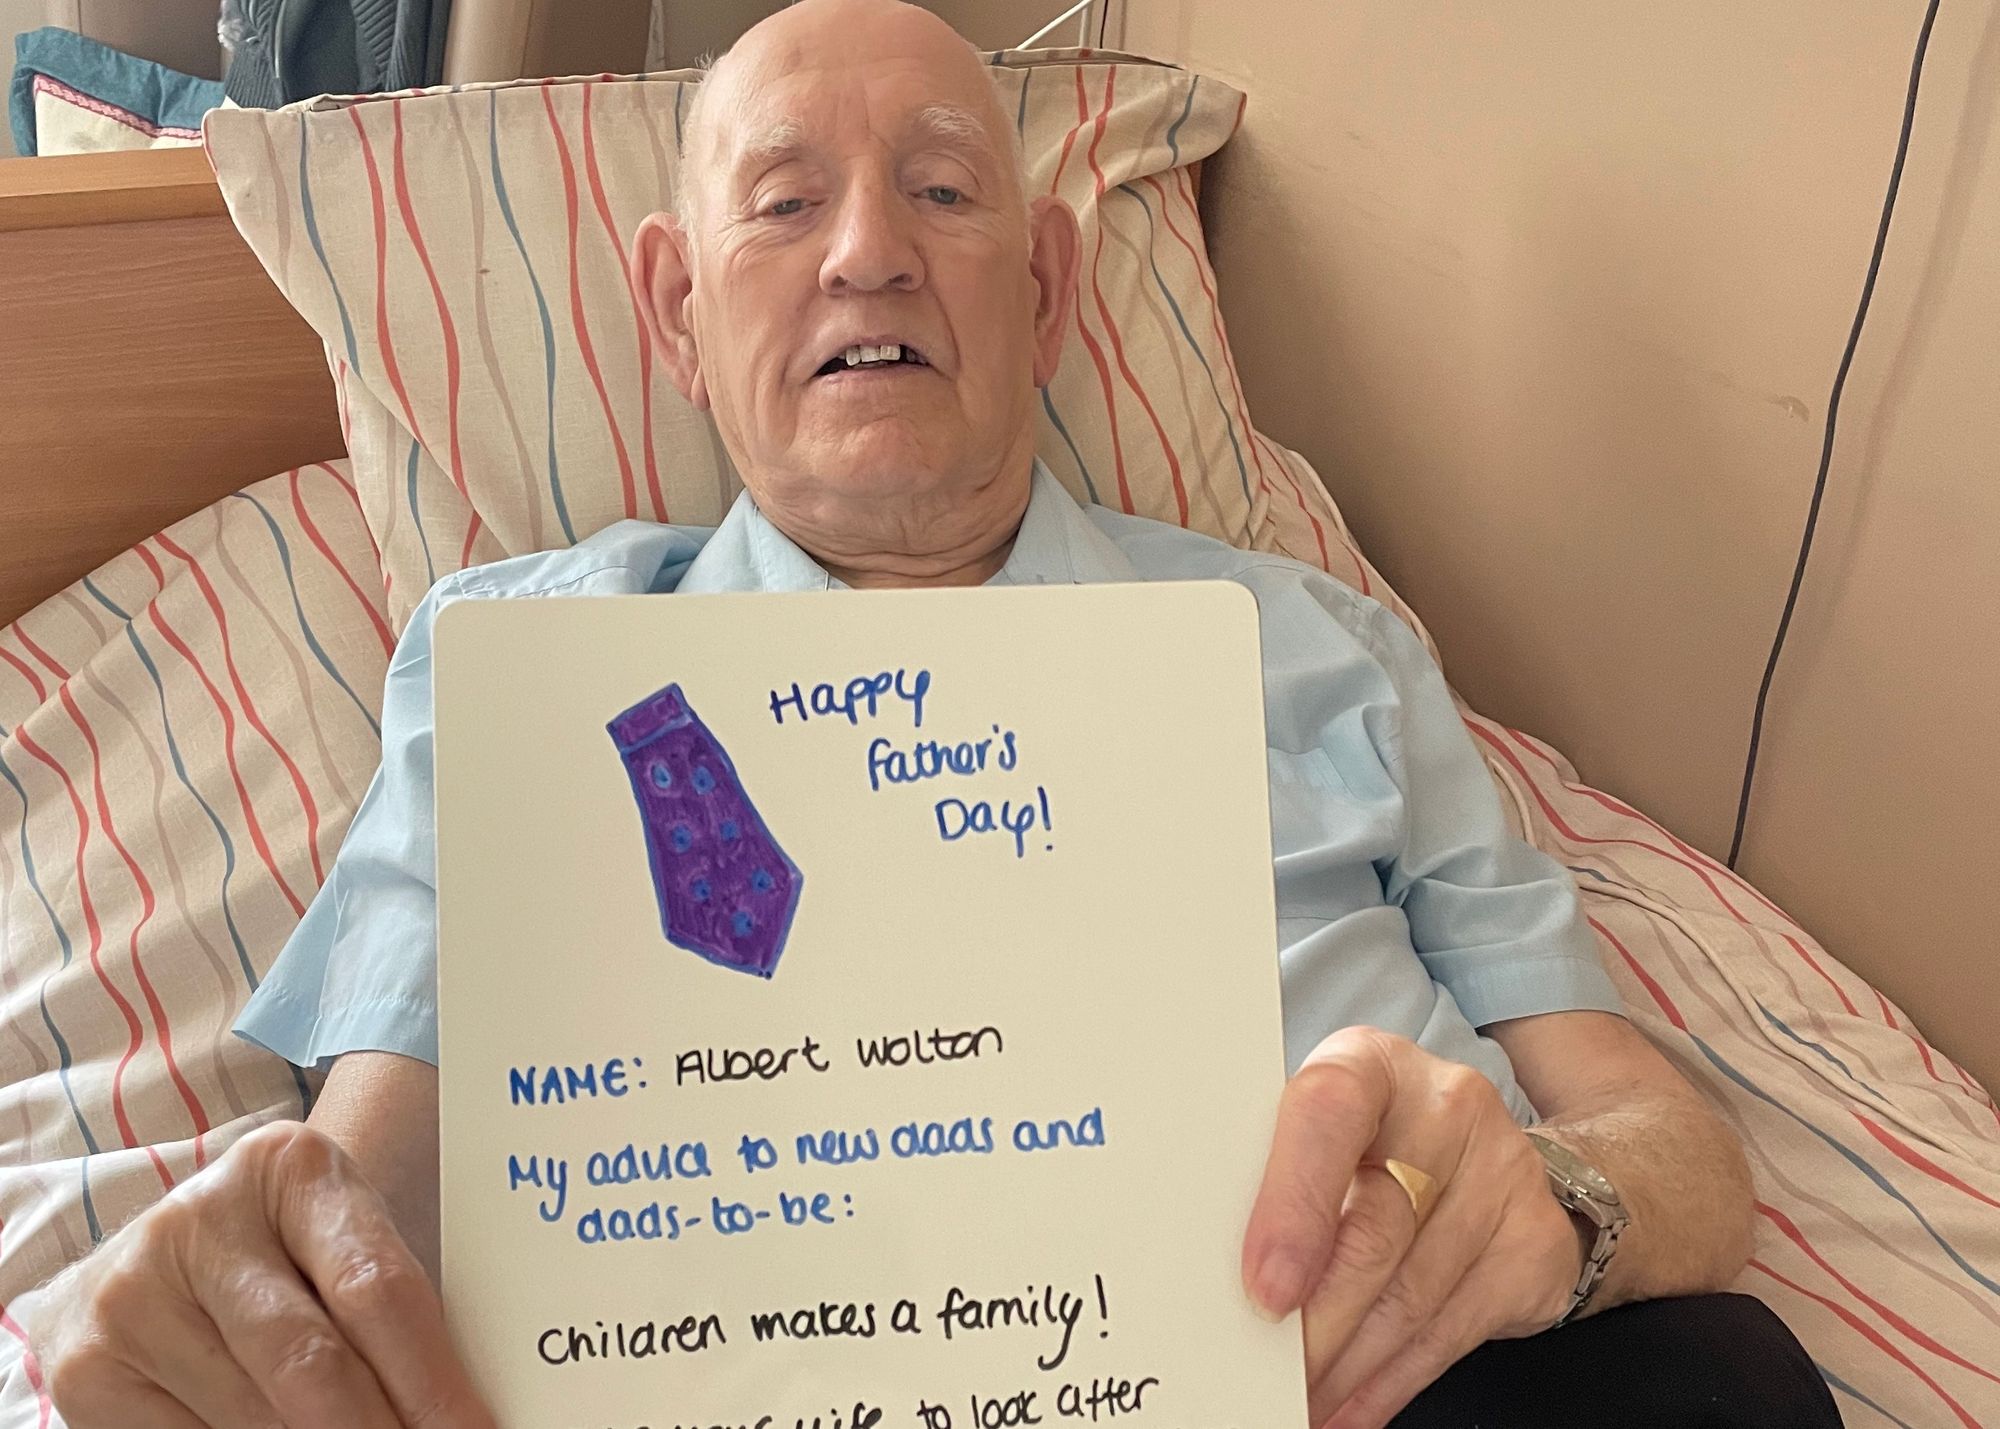 Happy
Father's
Day!
NAME: Albert Wolton
My advice to new dads and
dads-to-be:
Children makes a family!
wife to look after